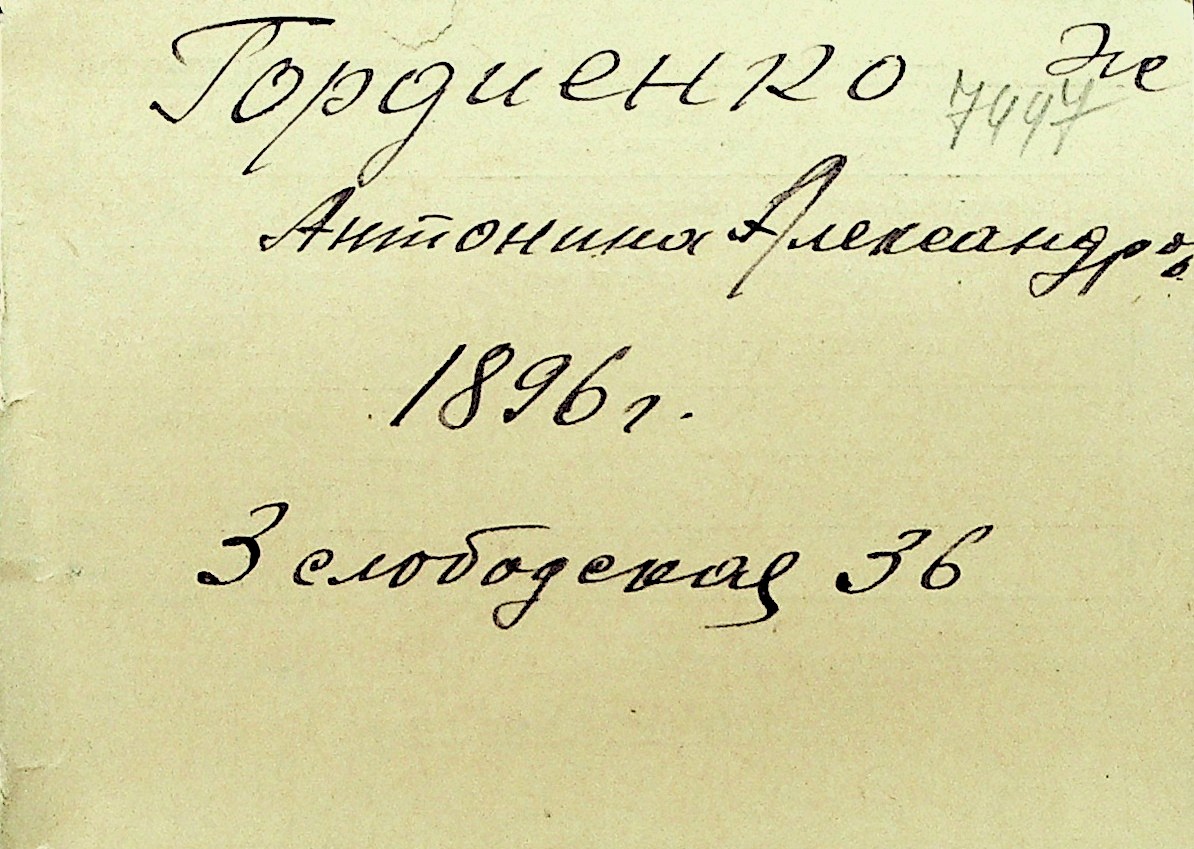 Гордиенко
Антонина Александров
1896 г.
3 слободская 36